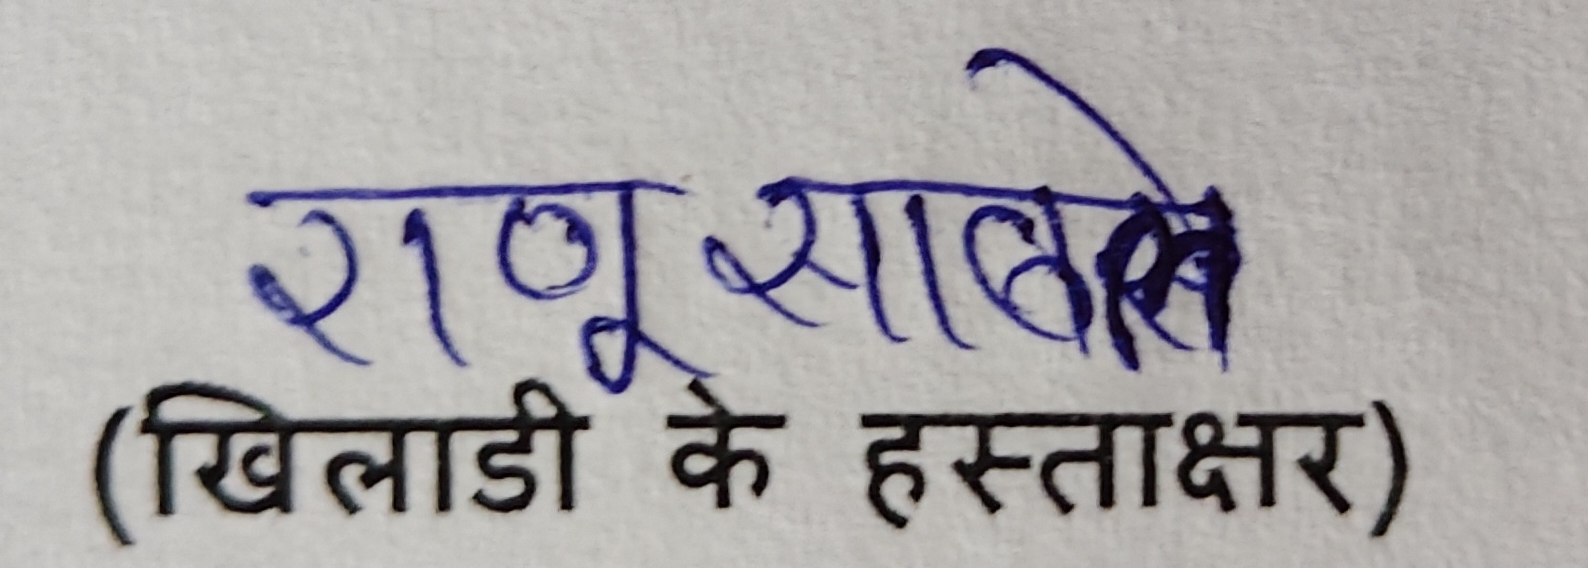 राणू
(खिलाडी के हस्ताक्षर)